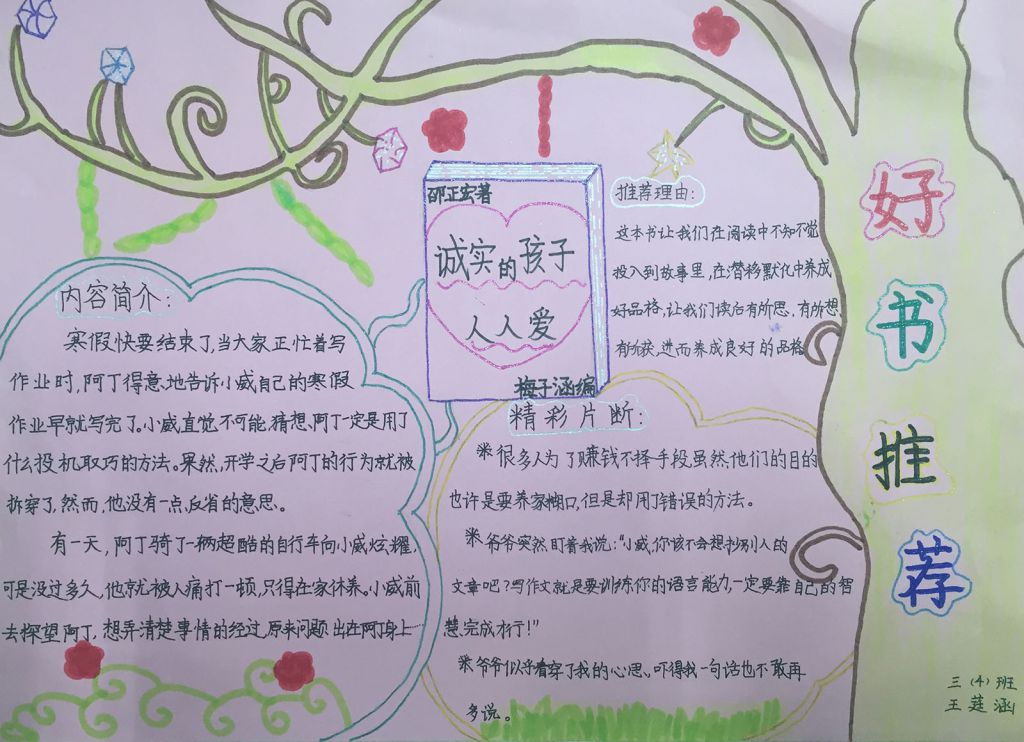 好书推荐
邵正宏著
诚实的孩子
人人爱
梅子涵编
推荐理由:
这本书让我们在阅读中不知不觉
投入到故事里,在潜移默化中养成
好品格,让我们读后有所思,有所想,
有所获,进而养成良好的品格
内容简介:
寒假快要结束了,当大家正忙着写
作业时,阿丁得意地告诉小威自己的寒假
作业早就写完了。小威直觉不可能,猜想阿丁一定是用了
什么投机取巧的方法。果然,开学之后阿丁的行为就被
拆穿了,然而,他没有一点反省的意思。
有一天,阿丁骑了一辆超酷的自行车向小威炫耀,
可是没过多久,他就被人痛打一顿,只得在家休养。小威前
去探望阿丁,想弄清楚事情的经过,原来问题出在阿丁身上…
精彩片断:
※很多人为了赚钱不择手段虽然他们的目的
也许是要养家糊口,但是却用了错误的方法。
※爷爷突然盯着我说:“小威,你该不会想抄别人的
文章吧?写作文就是要训练你的语言能力,一定要靠自己的智
慧完成才行!”
※爷爷似乎看穿了我的心思、吓得我一句话也不敢再
多说。
三(4)班
王莛涵